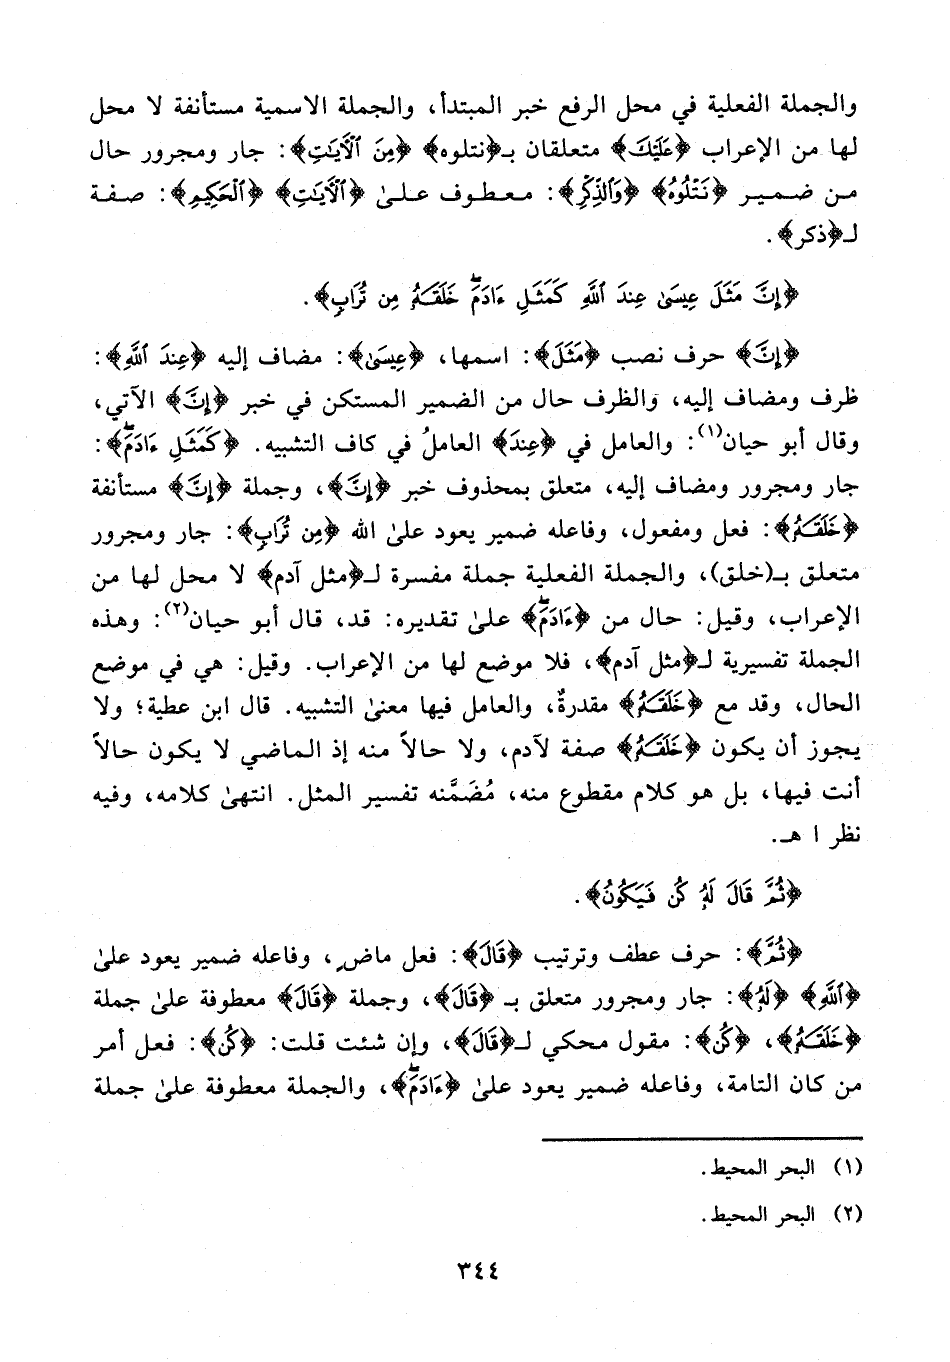 والجملة الفعلية في محل الرفع خبر المبتدأ، والجملة الاسمية مستأنفة لا محل
لها من الإعراب ﴿عَلَيْكَ﴾ متعلقان بـ﴿نتلوه﴾ ﴿مِنَ ٱلْآيَٰتِ﴾: جار ومجرور حال
من ضمير ﴿نَتْلُوهُ﴾ ﴿وَٱلذِّكْرِ﴾: معطوف علىٰ ﴿ٱلْآيَٰتِ﴾ ﴿ٱلْحَكِيمِ﴾: صفة
لـ﴿ذكر﴾.
﴿إِنَّ مَثَلَ عِيسَىٰ عِندَ ٱللَّهِ كَمَثَلِ ءَادَمَۖ خَلَقَهُۥ مِن تُرَابٍ﴾.
﴿إِنَّ﴾ حرف نصب ﴿مَثَلَ﴾: اسمها، ﴿عِيسَىٰ﴾: مضاف إليه ﴿عِندَ ٱللَّهِ﴾:
ظرف ومضاف إليه، والظرف حال من الضمير المستكن في خبر ﴿إِنَّ﴾ الآتي،
وقال أبو حيان(١): والعامل في ﴿عِندَ﴾ العاملُ في كاف التشبيه. ﴿كَمَثَلِ ءَادَمَۖ﴾:
جار ومجرور ومضاف إليه، متعلق بمحذوف خبر ﴿إِنَّ﴾، وجملة ﴿إِنَّ﴾ مستأنفة
﴿خَلَقَهُۥ﴾: فعل ومفعول، وفاعله ضمير يعود علىٰ الله ﴿مِن تُرَابٍ﴾: جار ومجرور
متعلق بـ(خلق)، والجملة الفعلية جملة مفسرة لـ﴿مثل آدم﴾ لا محل لها من
الإعراب، وقيل: حال من ﴿ءَادَمَۖ﴾ علىٰ تقديره: قد، قال أبو حيان(٢): وهذه
الجملة تفسيرية لـ﴿مثل آدم﴾، فلا موضع لها من الإعراب. وقيل: هي في موضع
الحال، وقد مع ﴿خَلَقَهُۥ﴾ مقدرةٌ، والعامل فيها معنىٰ التشبيه. قال ابن عطية؛ ولا
يجوز أن يكون ﴿خَلَقَهُۥ﴾ صفة لآدم، ولا حالاً منه إذ الماضي لا يكون حالاً
أنت فيها، بل هو كلام مقطوع منه، مُضَمَّنه تفسير المثل. انتهىٰ كلامه، وفيه
نظر ا هـ.
﴿ثُمَّ قَالَ لَهُۥ كُن فَيَكُونُ﴾.
﴿ثُمَّ﴾: حرف عطف وترتيب ﴿قَالَ﴾: فعل ماضٍ، وفاعله ضمير يعود علىٰ
﴿ٱللَّهِ﴾ ﴿لَهُۥ﴾: جار ومجرور متعلق بـ ﴿قَالَ﴾، وجملة ﴿قَالَ﴾ معطوفة علىٰ جملة
﴿خَلَقَهُۥ﴾، ﴿كُن﴾: مقول محكي لـ﴿قَالَ﴾، وإن شئت قلت: ﴿كُن﴾: فعل أمر
من كان التامة، وفاعله ضمير يعود علىٰ ﴿ءَادَمَۖ﴾، والجملة معطوفة علىٰ جملة
(١) البحر المحيط.
(٢) البحر المحيط.
٣٤٤